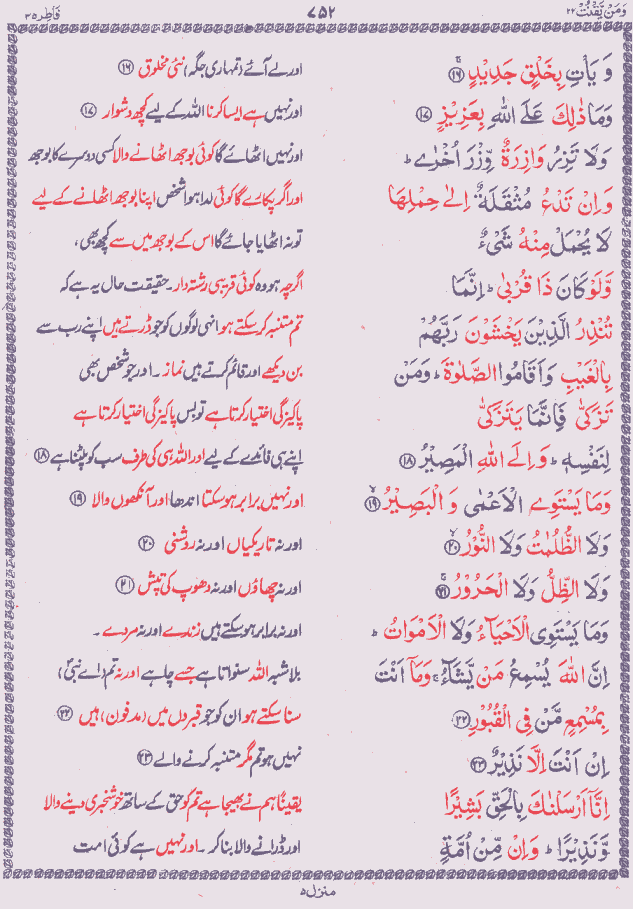 وَمَنْ يَّقْنُتْ ۲۲
۷۵۲
فَاطِر ۳۵
وَ يَاْتِ بِخَلْقٍ جَدِيْدٍ ۚ ﴿۱۶﴾
اور لے آئے (تمہاری جگہ) نئی مخلوق ﴿۱۶﴾
وَمَا ذٰلِكَ عَلَى اللّٰهِ بِعَزِيْزٍ ﴿۱۷﴾
اور نہیں ہے ایسا کرنا اللہ کے لیے کچھ دشوار ﴿۱۷﴾
وَلَا تَزِرُ وَازِرَةٌ وِّزْرَ اُخْرٰى ؕ
اور نہیں اٹھائے گا کوئی بوجھ اٹھانے والا کسی دوسرے کا بوجھ
وَاِنْ تَدْعُ مُثْقَلَةٌ اِلٰى حِمْلِهَا
اور اگر پکارے گا کوئی لدا ہوا شخص اپنا بوجھ اٹھانے کے لیے
لَا يُحْمَلْ مِنْهُ شَىْءٌ
تو نہ اٹھایا جائے گا اس کے بوجھ میں سے کچھ بھی،
وَّلَوْ كَانَ ذَا قُرْبٰى ؕ اِنَّمَا
اگرچہ ہو وہ کوئی قریبی رشتہ دار۔ حقیقت حال یہ ہے کہ
تُنْذِرُ الَّذِيْنَ يَخْشَوْنَ رَبَّهُمْ
تم متنبہ کر سکتے ہو انہی لوگوں کو جو ڈرتے ہیں اپنے رب سے
بِالْغَيْبِ وَاَقَامُوا الصَّلٰوةَ ؕ وَمَنْ
بن دیکھے اور قائم کرتے ہیں نماز۔ اور جو شخص بھی
تَزَكّٰى فَاِنَّمَا يَتَزَكّٰى
پاکیزگی اختیار کرتا ہے تو بس پاکیزگی اختیار کرتا ہے
لِنَفْسِهٖ ؕ وَاِلَى اللّٰهِ الْمَصِيْرُ ﴿۱۸﴾
اپنے ہی فائدے کے لیے اور اللہ ہی کی طرف سب کو پلٹنا ہے ﴿۱۸﴾
وَمَا يَسْتَوِى الْاَعْمٰى وَ الْبَصِيْرُ ۙ ﴿۱۹﴾
اور نہیں برابر ہو سکتا اندھا اور آنکھوں والا ﴿۱۹﴾
وَلَا الظُّلُمٰتُ وَلَا النُّوْرُ ۙ ﴿۲۰﴾
اور نہ تاریکیاں اور نہ روشنی ﴿۲۰﴾
وَلَا الظِّلُّ وَلَا الْحَرُوْرُ ۚ ﴿۲۱﴾
اور نہ چھاؤں اور نہ دھوپ کی تپش ﴿۲۱﴾
وَمَا يَسْتَوِى الْاَحْيَآءُ وَلَا الْاَمْوَاتُ ؕ
اور نہ برابر ہو سکتے ہیں زندے اور نہ مردے۔
اِنَّ اللّٰهَ يُسْمِعُ مَنْ يَّشَآءُ ۚ وَمَاۤ اَنْتَ
بلاشبہ اللہ سنواتا ہے جسے چاہے اور نہ تم (اے نبیؐ)
بِمُسْمِعٍ مَّنْ فِى الْقُبُوْرِ ﴿۲۲﴾
سنا سکتے ہو ان کو جو قبروں میں (مدفون) ہیں ﴿۲۲﴾
اِنْ اَنْتَ اِلَّا نَذِيْرٌ ﴿۲۳﴾
نہیں ہو تم مگر متنبہ کرنے والے ﴿۲۳﴾
اِنَّاۤ اَرْسَلْنٰكَ بِالْحَقِّ بَشِيْرًا
یقیناً ہم نے بھیجا ہے تم کو حق کے ساتھ خوشخبری دینے والا
وَّنَذِيْرًا ؕ وَاِنْ مِّنْ اُمَّةٍ
اور ڈرانے والا بنا کر۔ اور نہیں ہے کوئی امت
منزل ۵